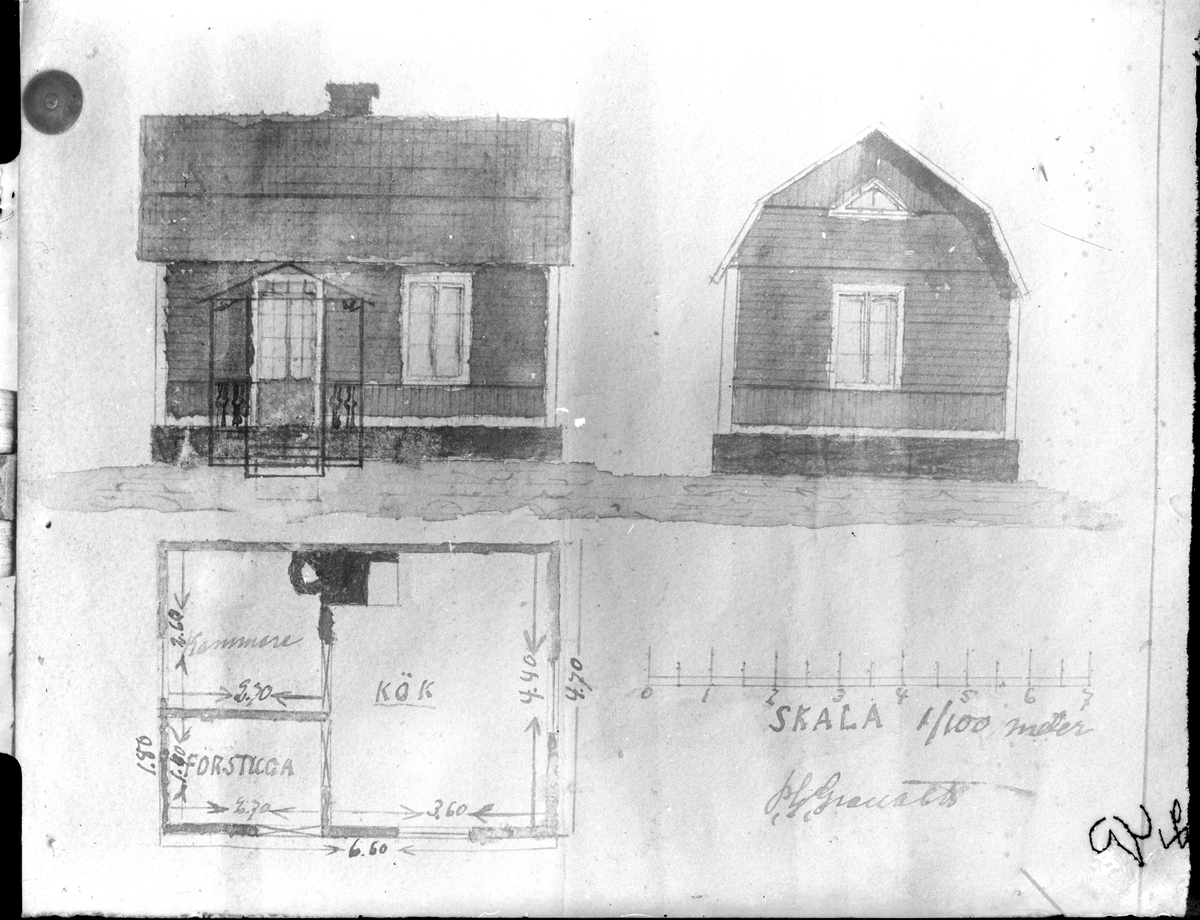 2.60
Kammare
2,70
KÖK
4.40
4,70
1.80
1.60
FÖRSTUGA
2.70
3,60
6.60
0 1 2 3 4 5 6 7
SKALA 1/100 meter